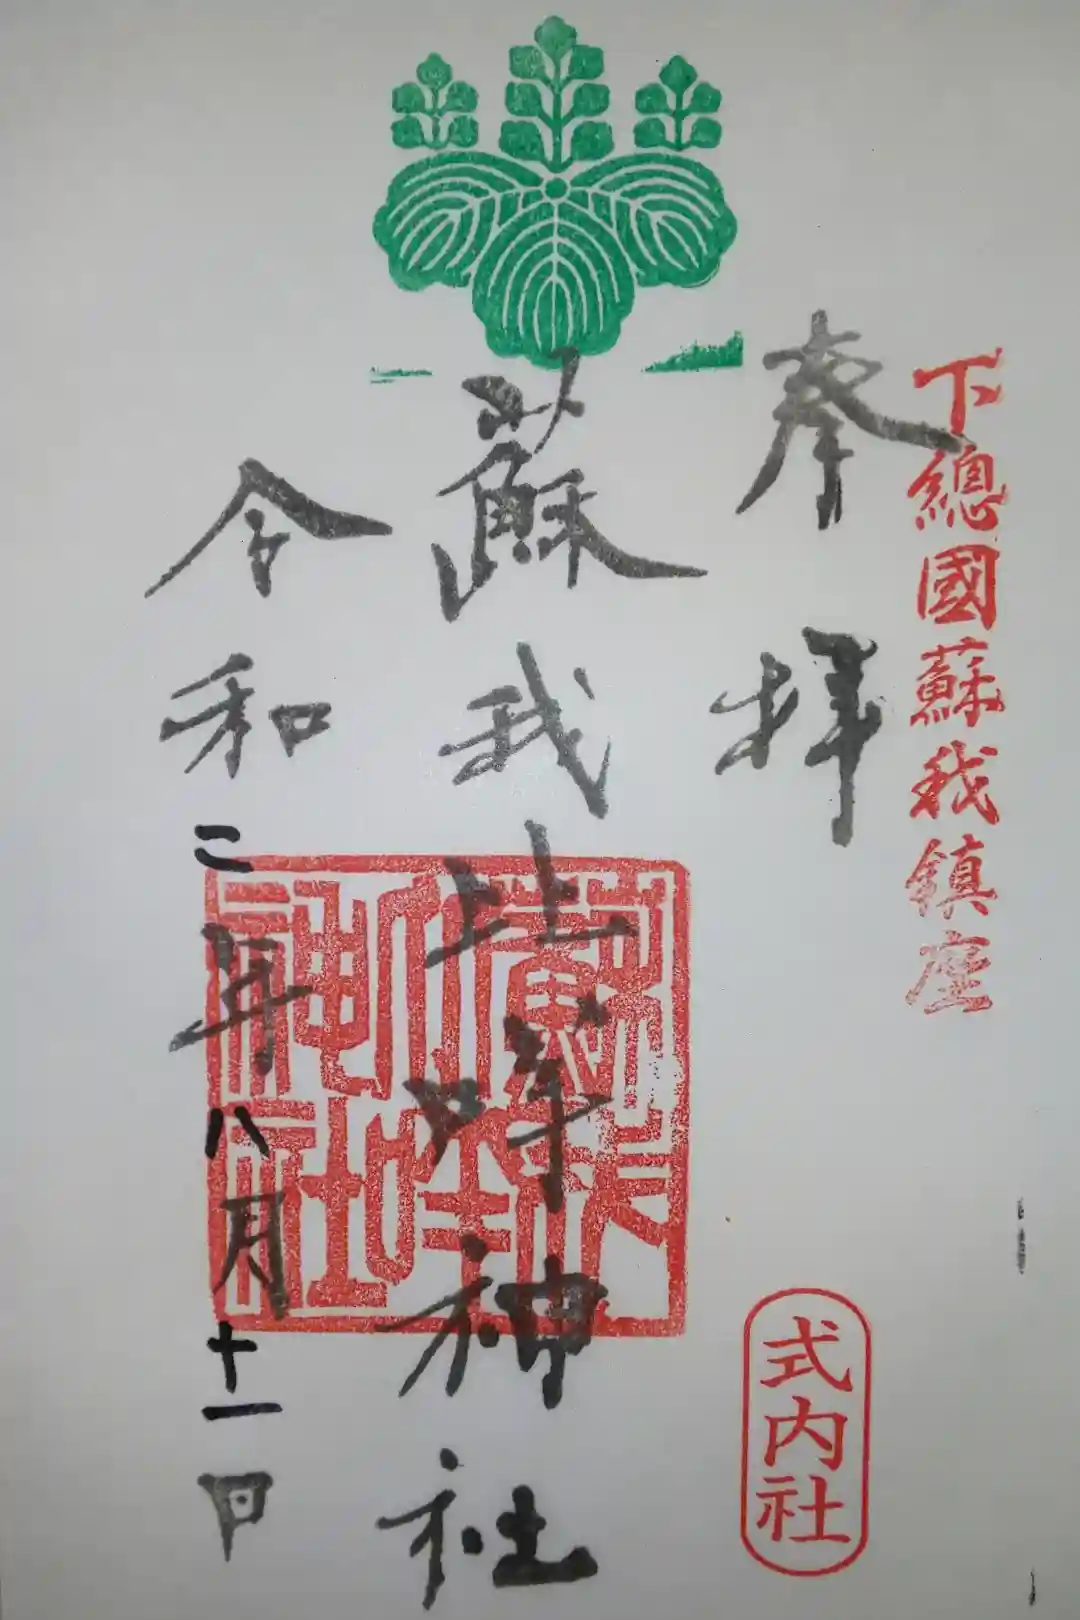 下總國蘇我鎮座
奉拝
式内社
蘇我比咩神社
令和二年八月十一日